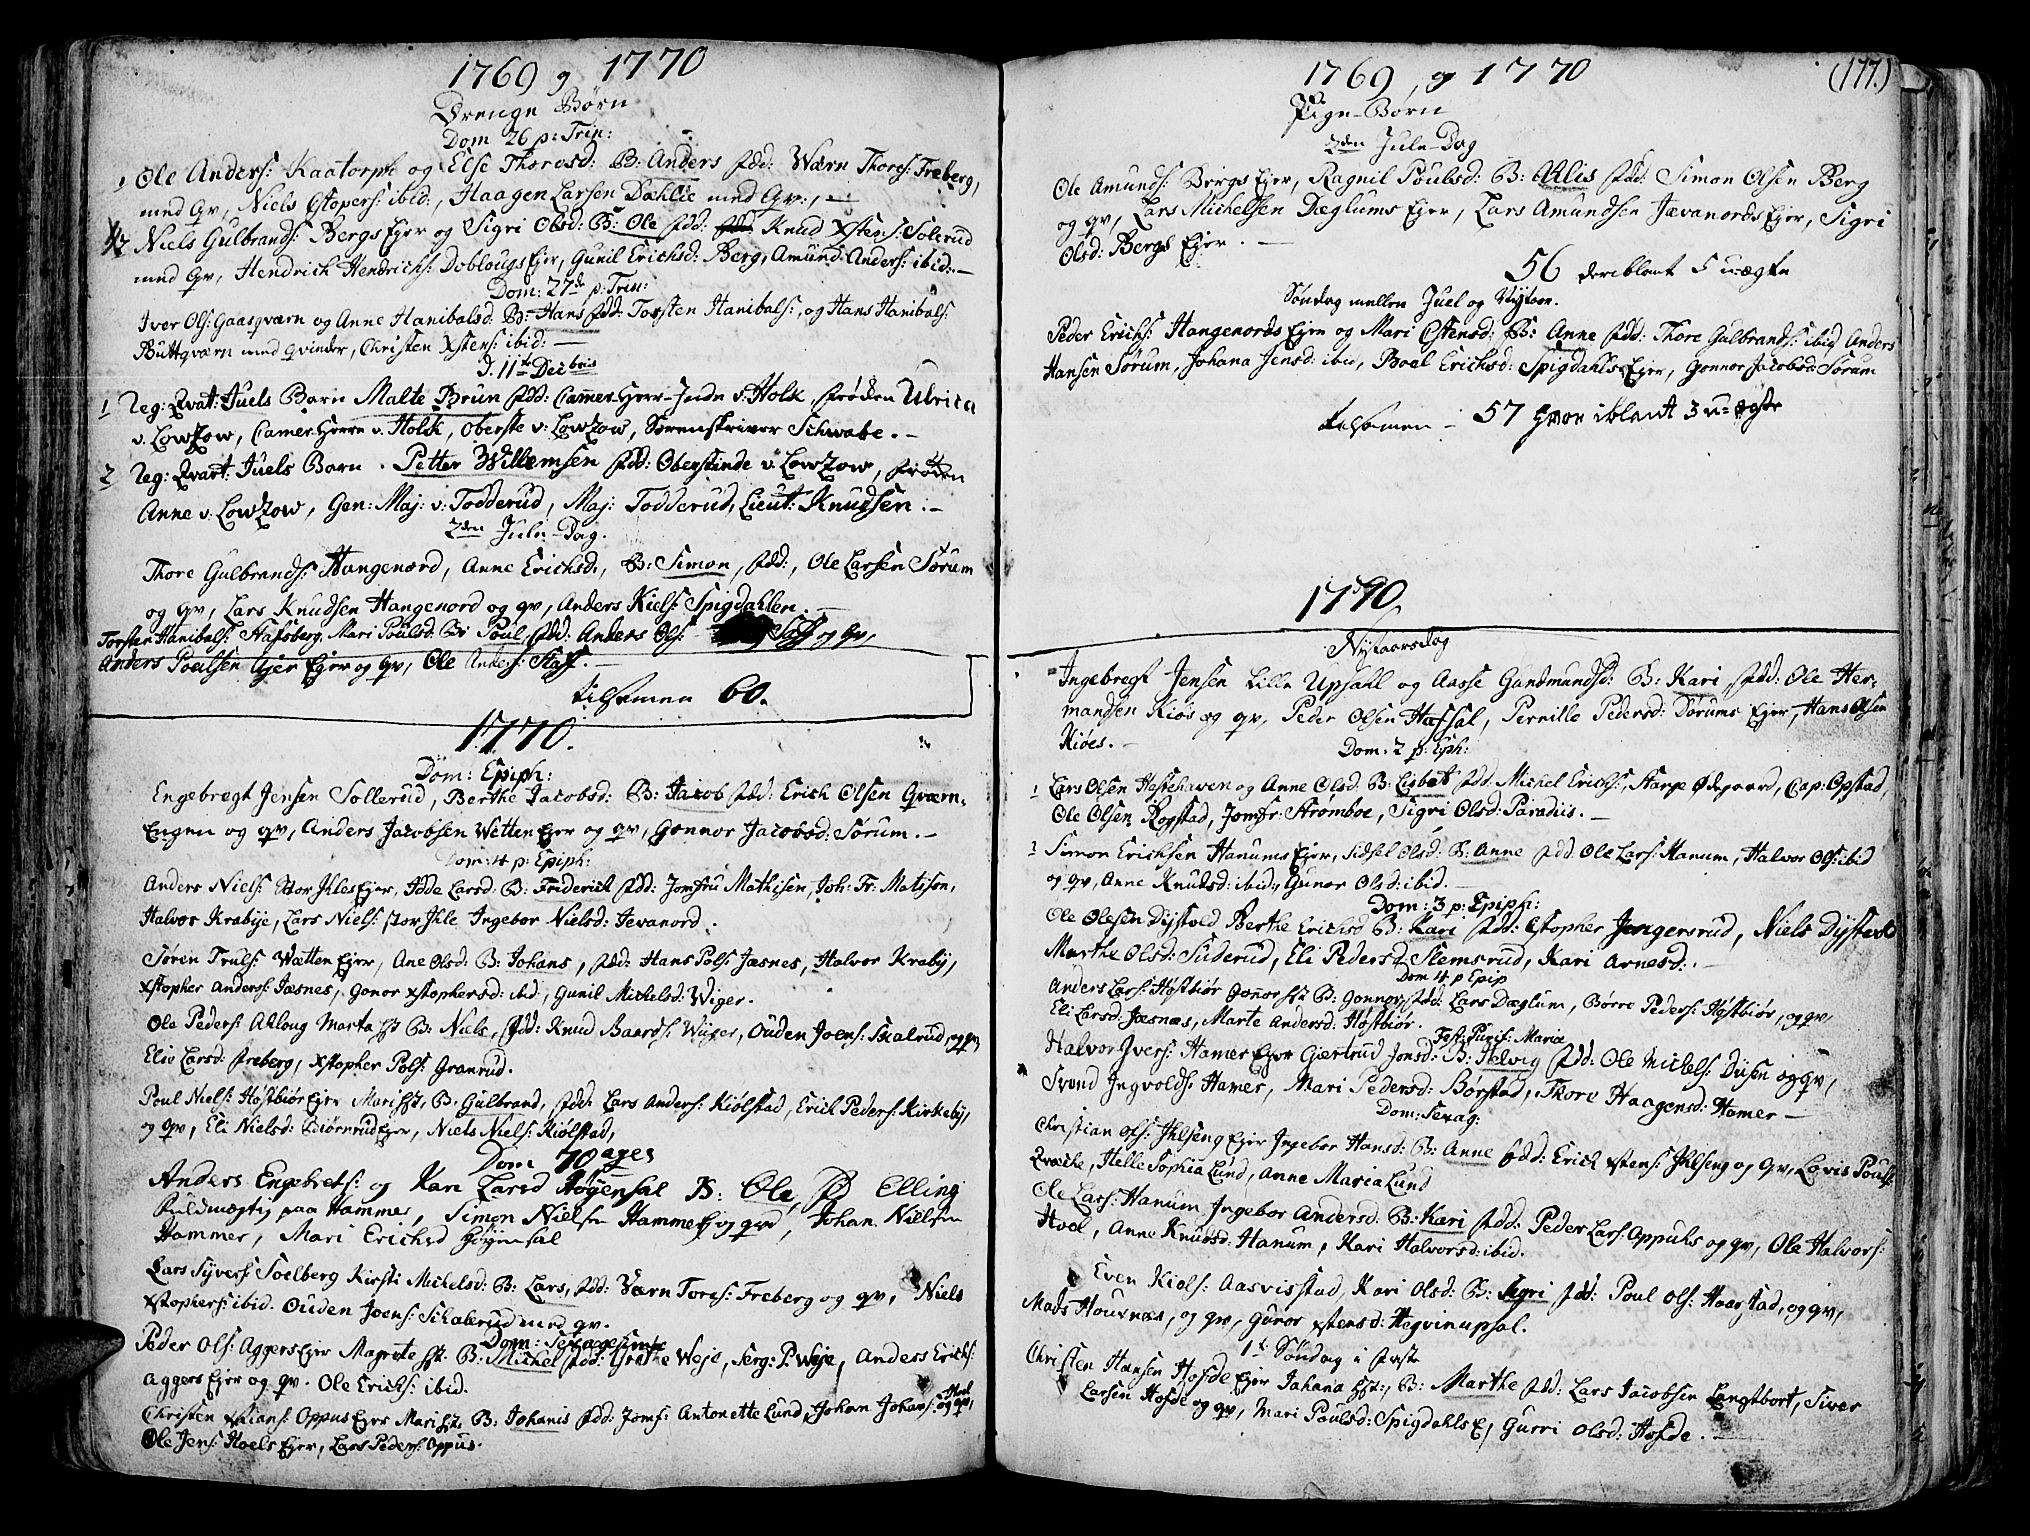 1769 og 1770
Drenge Børn
Dom 26 p: Trin:
1 Ole Anders: Kaatorph og Else Thoresd: B: Anders fdd: Wærn Thores: Freberg,
med Qv, Niels Xstopers: ibid:, Haagen Larsen Dæhlie med Qv:, —
2 Niels Gulbrands: Bergs Ejer og Sigri Olsd: B: Ole fdd: Knud Xstens: Solerud
med Qv, Hendrich Hendrichs: Doblougs Ejer, Gunil Erichsd: Berg, Amund Anders: ibid:—
Dom: 27de p: Trin:
Iver Ols: Gaasqværn og Anne Hanibalsd: B: Hans fdd: Torsten Hanibals:, og Hans Hanibals:
Buttqværn med qvinder, Christen Xstens: ibid: —
D: 11te Decbris
1 Reg: Qvat: Juels Barn Malte Brun fdd: Camer Herr Inde v: Holk, frøden Ulrica
v. Lowzow, Camer Herre v. Holk, Oberste v: Lowzow, Sørenskriver Schwabe. —
2 Reg: Qvart: Juels Barn. Petter Willemsen fdd: Oberstinde v. Lowzow, frøden
Anne v: Lowzow, Gen: Maj: v: Todderud, Maj: Todderud, Lieut: Knudsen. —
2den Jule-Dag.
Thore Gulbrands: Hangenord, Anne Erichsd:, B: Simon, fdd:, Ole Larsen Sørum
og qv, Lars Knudsen Hangenord og qv, Anders Niels: Spigdahlen. —
Torsten Hanibals: Stafsberg, Mari Poulsd: B: Poul, fdd: Anders Ols: Staf og qv,
Anders Poulsen Gjer Ejer og qv, Ole Anders: Staf. —
tilsamen 60.
1770.
Dom: Epiph:
Engebregt Jensen Sollerud, Berthe Jacobsd: B: Jacob fdd: Erich Olsen Qværn-
Engen og qv, Anders Jacobsen Wetten Ejer og qv, Gonnor Jacobsd: Sørum. —
Dom: 4 p: Epiph:
Anders Niels: Stor Ihles Ejer, Idde Larsd: B: Friderich fdd: Jomfru Mathisen, Joh: Fr: Matisen,
Halvor Krabye, Lars Niels: Stor Ihle Ingebor Nielsd: Jevanord.
Søren Truls: Wætten Ejer, Ane Olsd: B: Johans, fdd: Hans Pols: Jæsnes, Halvor Kraby,
Xstopher Anders: Jæsnes, Gonor Xstophersd: ibid, Gunil Michelsd: Wiger.
Ole Peders: Alloug Marta Hst: B: Niels, fdd: Knud Baards: Wiiger, Ouden Joens: Skalrud, og qv,
Elie Larsd: Freberg, Xstopher Pols: Granrud.
Poul Niels: Høstbiør Ejer Mari Hst: B: Gulbrand, fdd: Lars Anders: Kiølstad, Erich Peders: Kirkeby,
og qv, Eli Nielsd: Biørnrud Ejer, Niels Niels: Kiølstad,
Dom 70ages
Anders Engebrets: og Kari Larsd Høyensal B: Ole, fd Elling
Fuldmægtig paa Hammer, Simon Nielsen Hammer Ej og qvd, Johan Nillsen
Hammer, Mari Erichsd Høyensal
Lars Syvers: Soelberg Kirsti Michelsd: B: Lars, fdd: Værn Tores: Freberg og qv, Niels
Xstophers: ibid. Ouden Joens: Schalerud med qv.
Dom: Sexagesima
Peder Ols: Aggers Ejer Magrete Hst: B: Michel fdd: Grethe Weje, Serg: P. Weje, Anders Erichs:
Aggers Ejer og qv. Ole Erichs: ibid.
Christen Xstians: Oppus Ejer Mari Hst: B: Johanis fdd: Jomf: Antonette Lund, Johan Johans: Hoel og qv,
Ole Jens: Hoels Ejer, Lars Peders: Oppus.
1769, og 1770 (177.)
Pige-Børn
2den Jule-Dag
Ole Amunds: Bergs Ejer, Ragnil Poulsd: B: Allis fdd: Simon Olsen Berg
og qv, Lars Michelsen Dæglums Ejer, Lars Amundsen Jævanords Ejer, Sigri
Olsd: Bergs Ejer. —
56 deriblant 5 uægte
Søndag mellem Juel og Nytaar.
Peder Erichs: Hangenords Ejer og Mari Ostensd: B: Anne fdd: Thore Gulbrands: ibid Anders
Hansen Sørum, Johana Jensd: ibid, Boel Erichsd: Spigdahls Ejer, Gonnor Jacobsd Sørum
tilsamen — 57 hvor iblant 3 u-ægte
1770.
Nytaarsdag
Ingebregt Jensen Lille Uphsall og Aasse Gundmundsd: B: Kari, fdd: Ole Her-
mandsen Kiøs og qv, Peder Olsen Hafsal, Pernille Pedersd: Sørums Ejer, Hans Olsen
Kiøes. —
Dom: 2 p: Eph:
1 Lars Olsen Hestehaven og Anne Olsd: B: Lisbet fdd: Michel Erichs:, Starpe Ødegaard, Cap: Opstad,
Ole Olsen Rogstad, Jomfr: Strømboe, Sigri Olsd: Paradiis. —
2 Simon Erichsen Hanums Ejer, Sidsel Olsd: B: Anne fdd: Ole Lars: Hanum, Halvor Ols: ibid
og qv, Anne Knudsd: ibid., Gunor Olsd: ibid.
Dom: 3 p: Epiph:
Ole Olesen Dystvold Berthe Erichsd B: Kari fdd: Xstopher Jengersrud, Niels Dystvold
Marthe Olsd: Suderud, Eli Pedersd Slemsrud, Kari Arnesd: —
Dom 4 p Epip
Anders Lars: Høstbiør Gonnor Hst: B: Gonnor, fdd: Lars Dæglum, Børre Peders: Høstbiør, og qv,
Eli Larsd: Jæsnæs, Marte Andersd: Høstbiør.
Fest: Purif: Mariæ
Halvor Ivers: Hamer Ejer Giærtrud Jonsd: B: Helvig fdd: Ole Michels: Disen og qv,
Svend Ingvolds: Hamer, Mari Pedersd: Børstad, Thore Haagensd: Hamer —
Dom: Sexag:
Christian Ols: Ihlseng Ejer Ingebor Hansd: B: Anne fdd: Erich Xstens: Ihlseng og qv, Lovis Pouls:
Qvæthe, Helle Sophia Lund, Anne Maria Lund
Ole Lars: Hanum Ingebor Andersd: B: Kari fdd: Peder Lars: Oppuhs og qv, Ole Halvors:
Hoel, Anne Knudsd: Hanum, Kari Halvorsd: ibid.
Even Kiols: Aasvisstad, Kari Olsd: B: Sigri fdd: Poul Ols: Haarstad, og qv,
Mads Hournæs, og qv, Gunor Xstensd: Hegvinupsal.
1te Søndag i Faste
Christen Hansen Hofde Ejer Johana Hst:, B: Marthe fdd: Lars Jacobsen Langtbort, Siver
Larsen Hofde og qv, Mari Poulsd: Spigdahls E, Gurri Olsd: Hofde. —